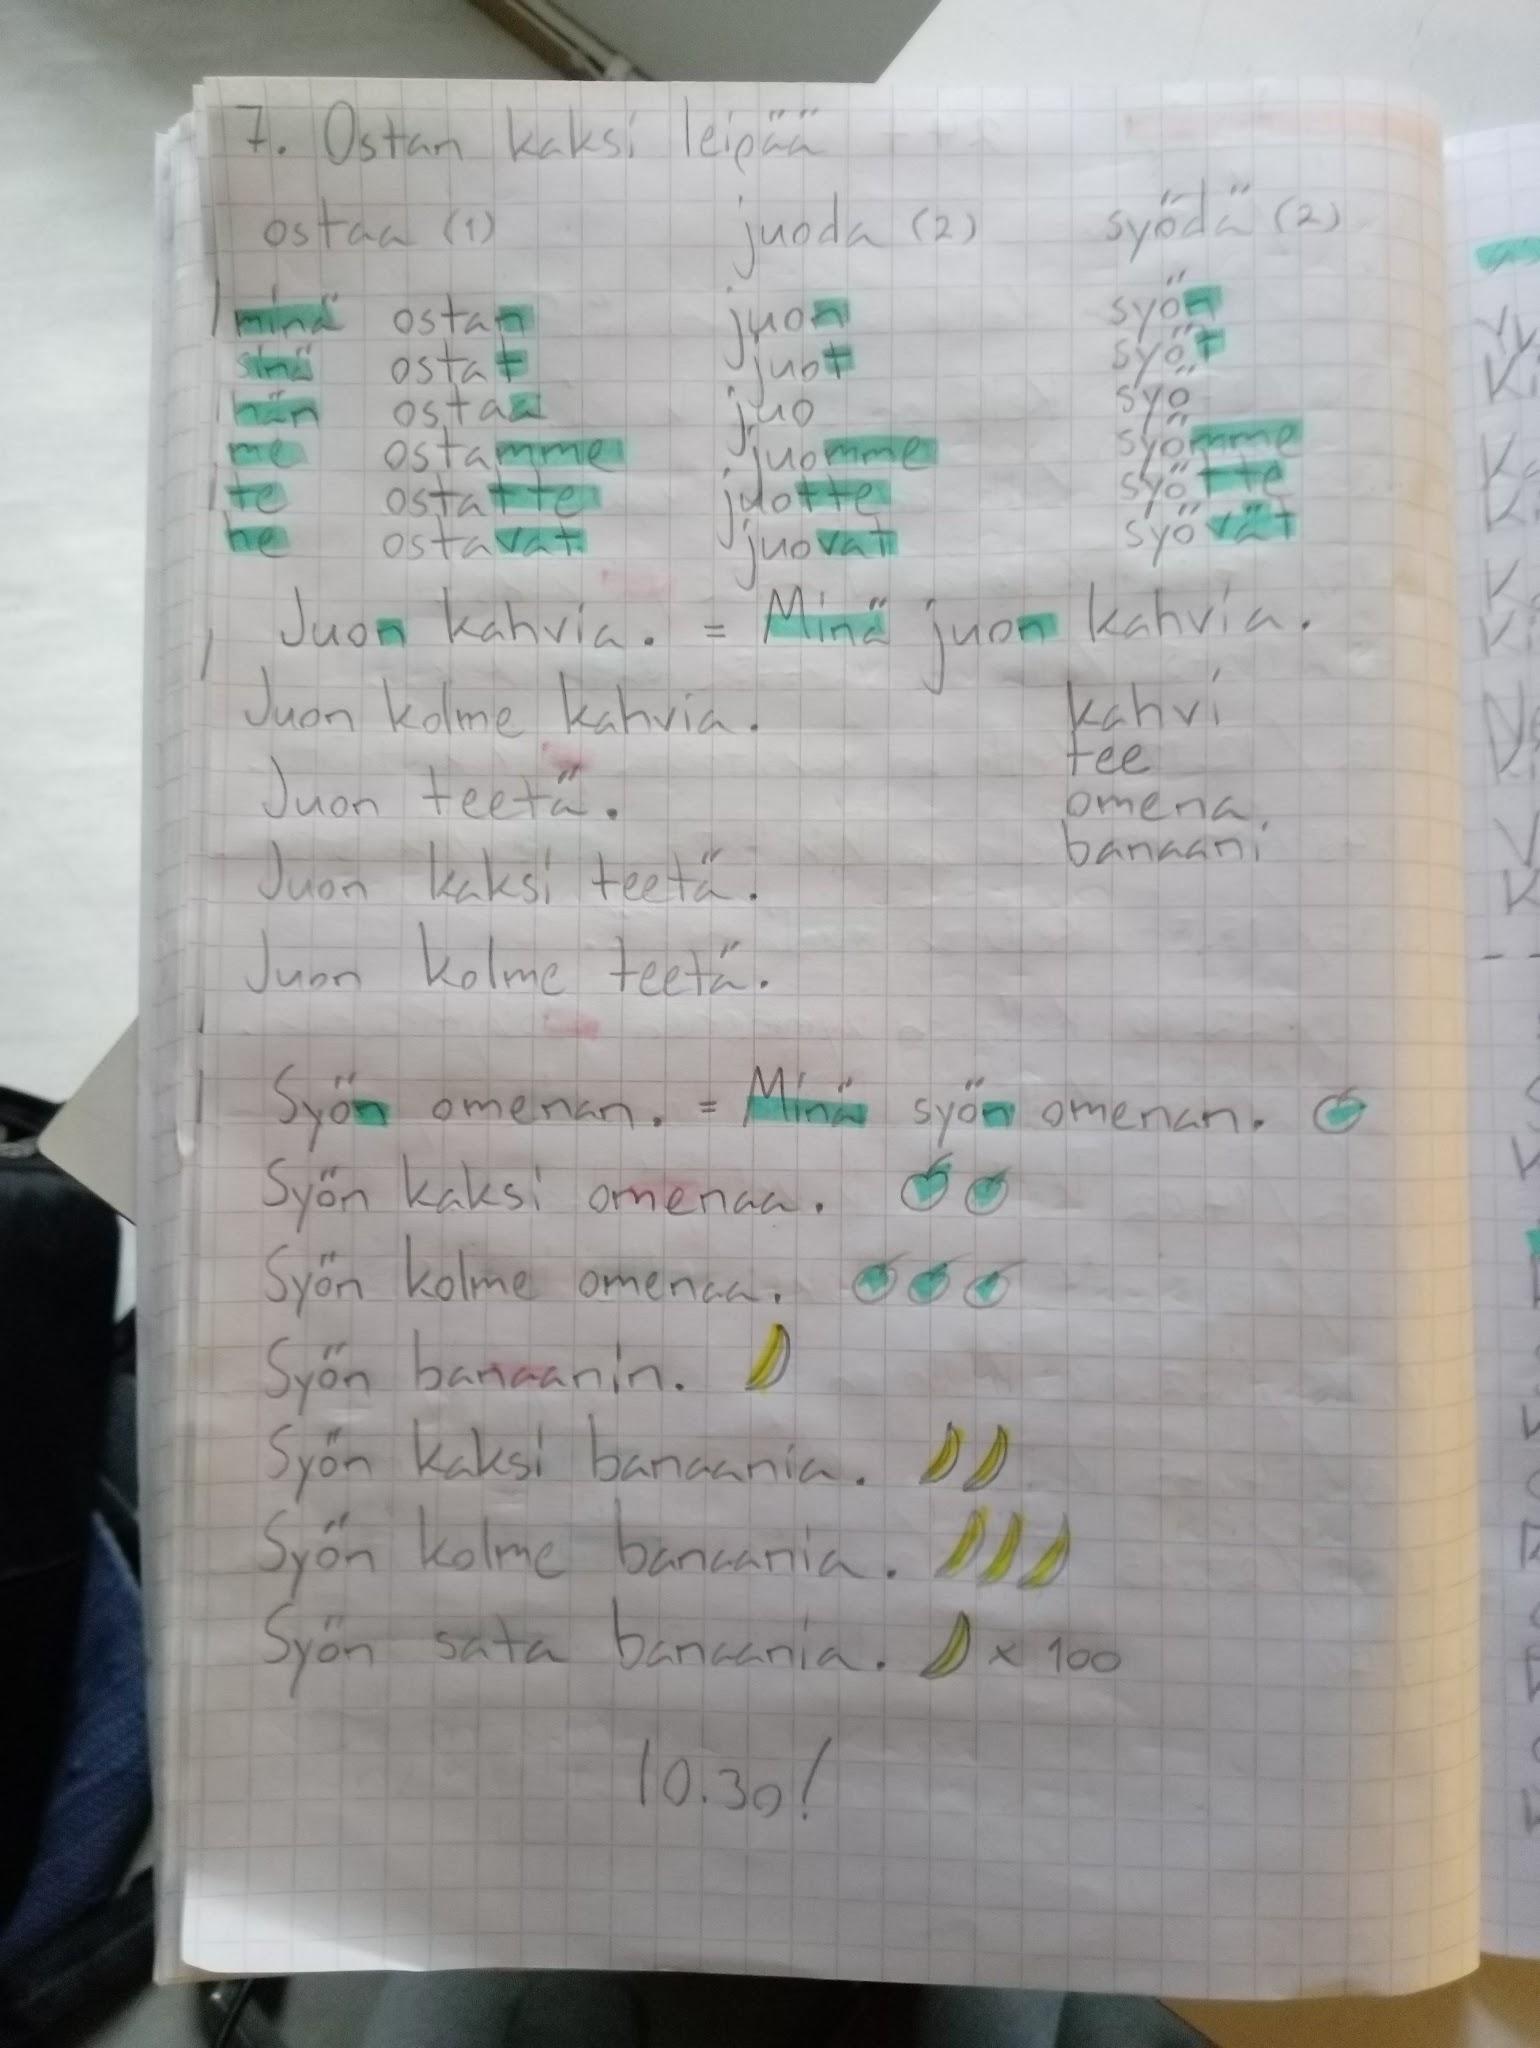 7. Ostan kaksi leipää
ostaa (1) juoda (2) syödä (2)
minä ostan juon syön
sinä ostat juot syöt
hän ostaa juo syö
me ostamme juomme syömme
te ostatte juotte syötte
he ostavat juovat syövät
Juon kahvia. = Minä juon kahvia.
Juon kolme kahvia. kahvi
tee
Juon teetä. omena
banaani
Juon kaksi teetä.
Juon kolme teetä.
Syön omenan. = Minä syön omenan.
Syön kaksi omenaa.
Syön kolme omenaa.
Syön banaanin.
Syön kaksi banaania.
Syön kolme banaania.
Syön sata banaania. x 100
10.30!